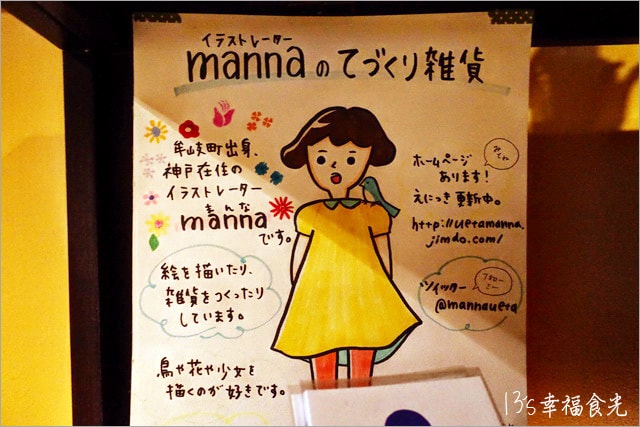 イラストレーター
mannaのてづくり雑貨
牟岐町出身、
神戸在住の
イラストレーター
まんな
manna
です。
絵を描いたり、
雑貨をつくったり
しています。
鳥や花や少女を
描くのが好きです。
みてや
ホームページ
あります!
えにっき更新中。
http://uetamanna.
jimdo.com/
フォロー
ミー
ツイッター
@mannaueta
13's幸福食光